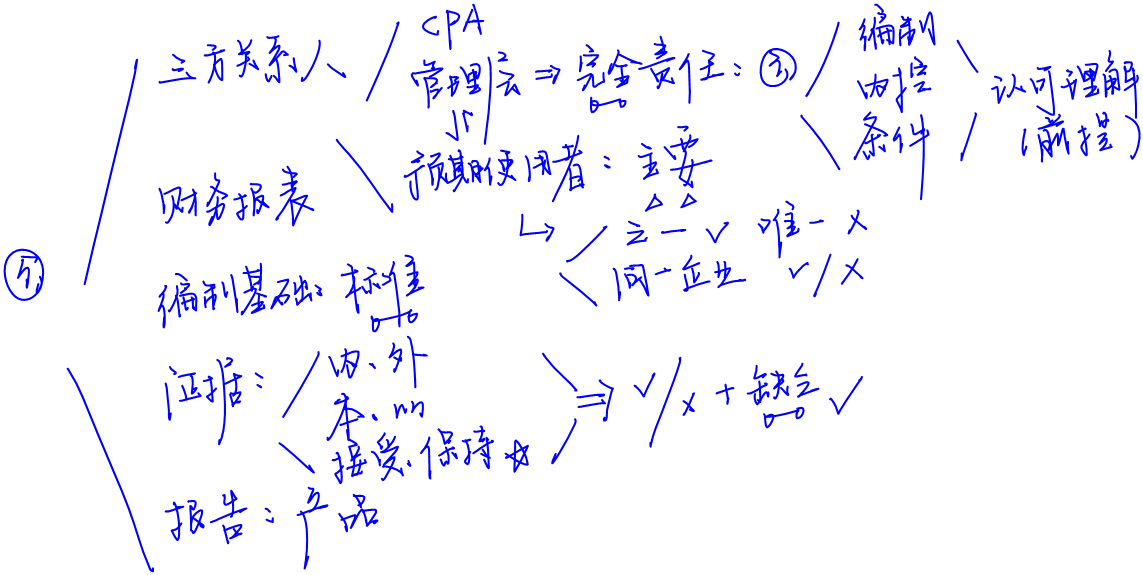 三方关系人
CPA
管理层 ⇒ 完全责任：③
编制
内控
条件
认可理解
(前提)
预期使用者：主要
之一 √ 唯一 ×
同一企业 √/×
财务报表
⑤
编制基础：标准
证据：
内、外
本、
接受、保持 ☆
⇒ √/× + 缺乏 √
报告：产品